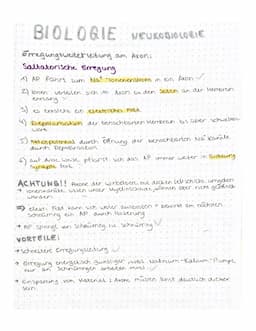 BIOLOGIE NEUROBIOLOGIE
Erregungsweiterleitung am Axon:
Saltatorische Erregung
1) AP führt zum Na⁺-Ionenenstrom in ein Axon
2) Ionen verteilen sich im Axon an den Seiten der Membran
entlang
3) es entsteht ein elektrisches Feld
4) Depolarisation der benachbarten Membran bis über Schwellen
wert
5) Aktionspotential durch Öffnung der benachbarten Na⁺ Kanäle
durch Depolarisation
6) auf diese Weise pflanzt sich das AP immer weiter in Richtung
Synapse fort
ACHTUNG!! Axone der Wirbeltiere mit dicken
→ elektr. Feld kann sich weiter ausbreiten
Schnürring ein AP durch
→ AP springt von Schnürring zu Schnürring
VORTEILE:
→ schnellere Erregungsleitung
→ Erregung energetisch günstiger, weil Natrium-Kalium-Pumpe
nur an Schnürringen arbeiten muss
→ Einsparung von Material: Axone müssten sonst deutlich dicker
sein